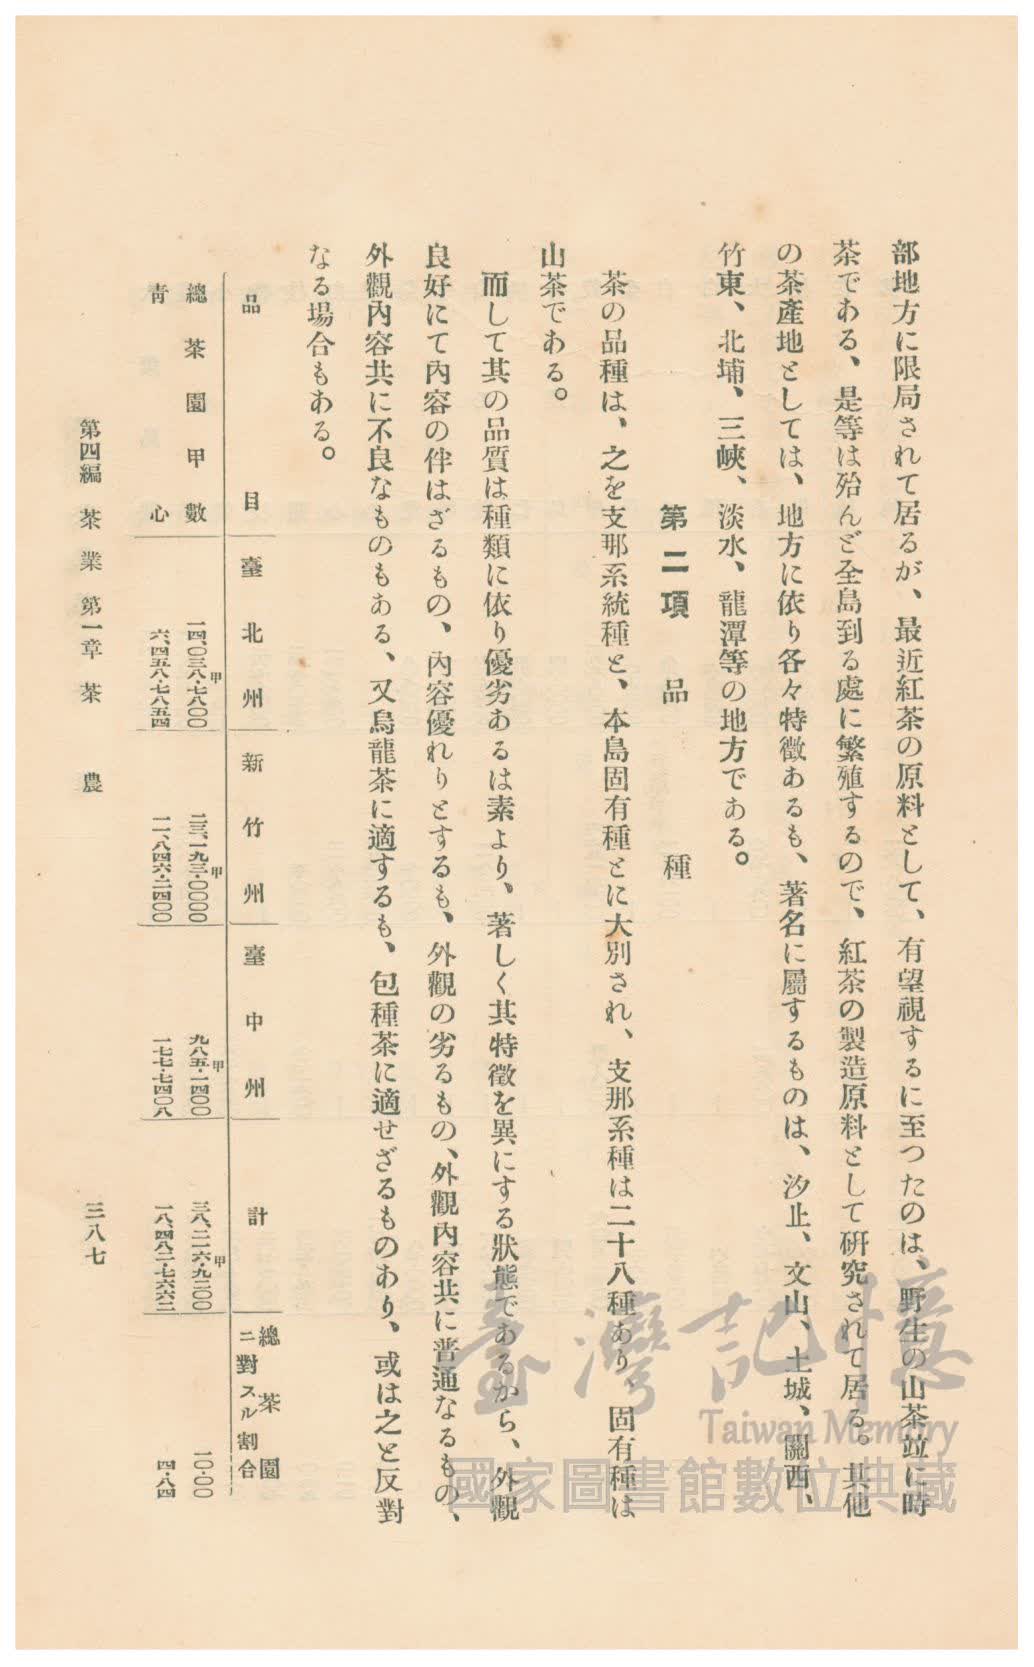 部地方に限局されて居るが、最近紅茶の原料として、有望視するに至つたのは、野生の山茶竝に時
茶である、是等は殆んど全島到る處に繁殖するので、紅茶の製造原料として硏究されて居る。其他
の茶產地としては、地方に依り各々特徵あるも、著名に屬するものは、汐止、文山、土城、關西、
竹東、北埔、三峽、淡水、龍潭等の地方である。
第二項 品種
茶の品種は、之を支那系統種と、本島固有種とに大別され、支那系種は二十八種あり、固有種は
山茶である。
而して其の品質は種類に依り優劣あるは素より、著しく其特徵を異にする狀態であるから、外觀
良好にて內容の伴はざるもの、內容優れりとするも、外觀の劣るもの、外觀內容共に普通なるもの、
外觀內容共に不良なものもある、又烏龍茶に適するも、包種茶に適せざるものあり、或は之と反對
なる場合もある。
品目 臺北州 新竹州 臺中州 計 總茶園ニ對スル割合
總茶園甲數 一四、〇三八・七八〇〇甲 二三、一九三・〇〇〇〇甲 九八五・一四〇〇甲 三八、二一六・九二〇〇甲 一〇・〇〇
靑心 六、四五八・七八五四 一一、八四六・二四〇〇 一七七・七四〇八 一八、四八二・七六六二 四・八四
第四編 茶業 第一章 茶農 三八七
臺灣記憶
Taiwan Memory
國家圖書館數位典藏